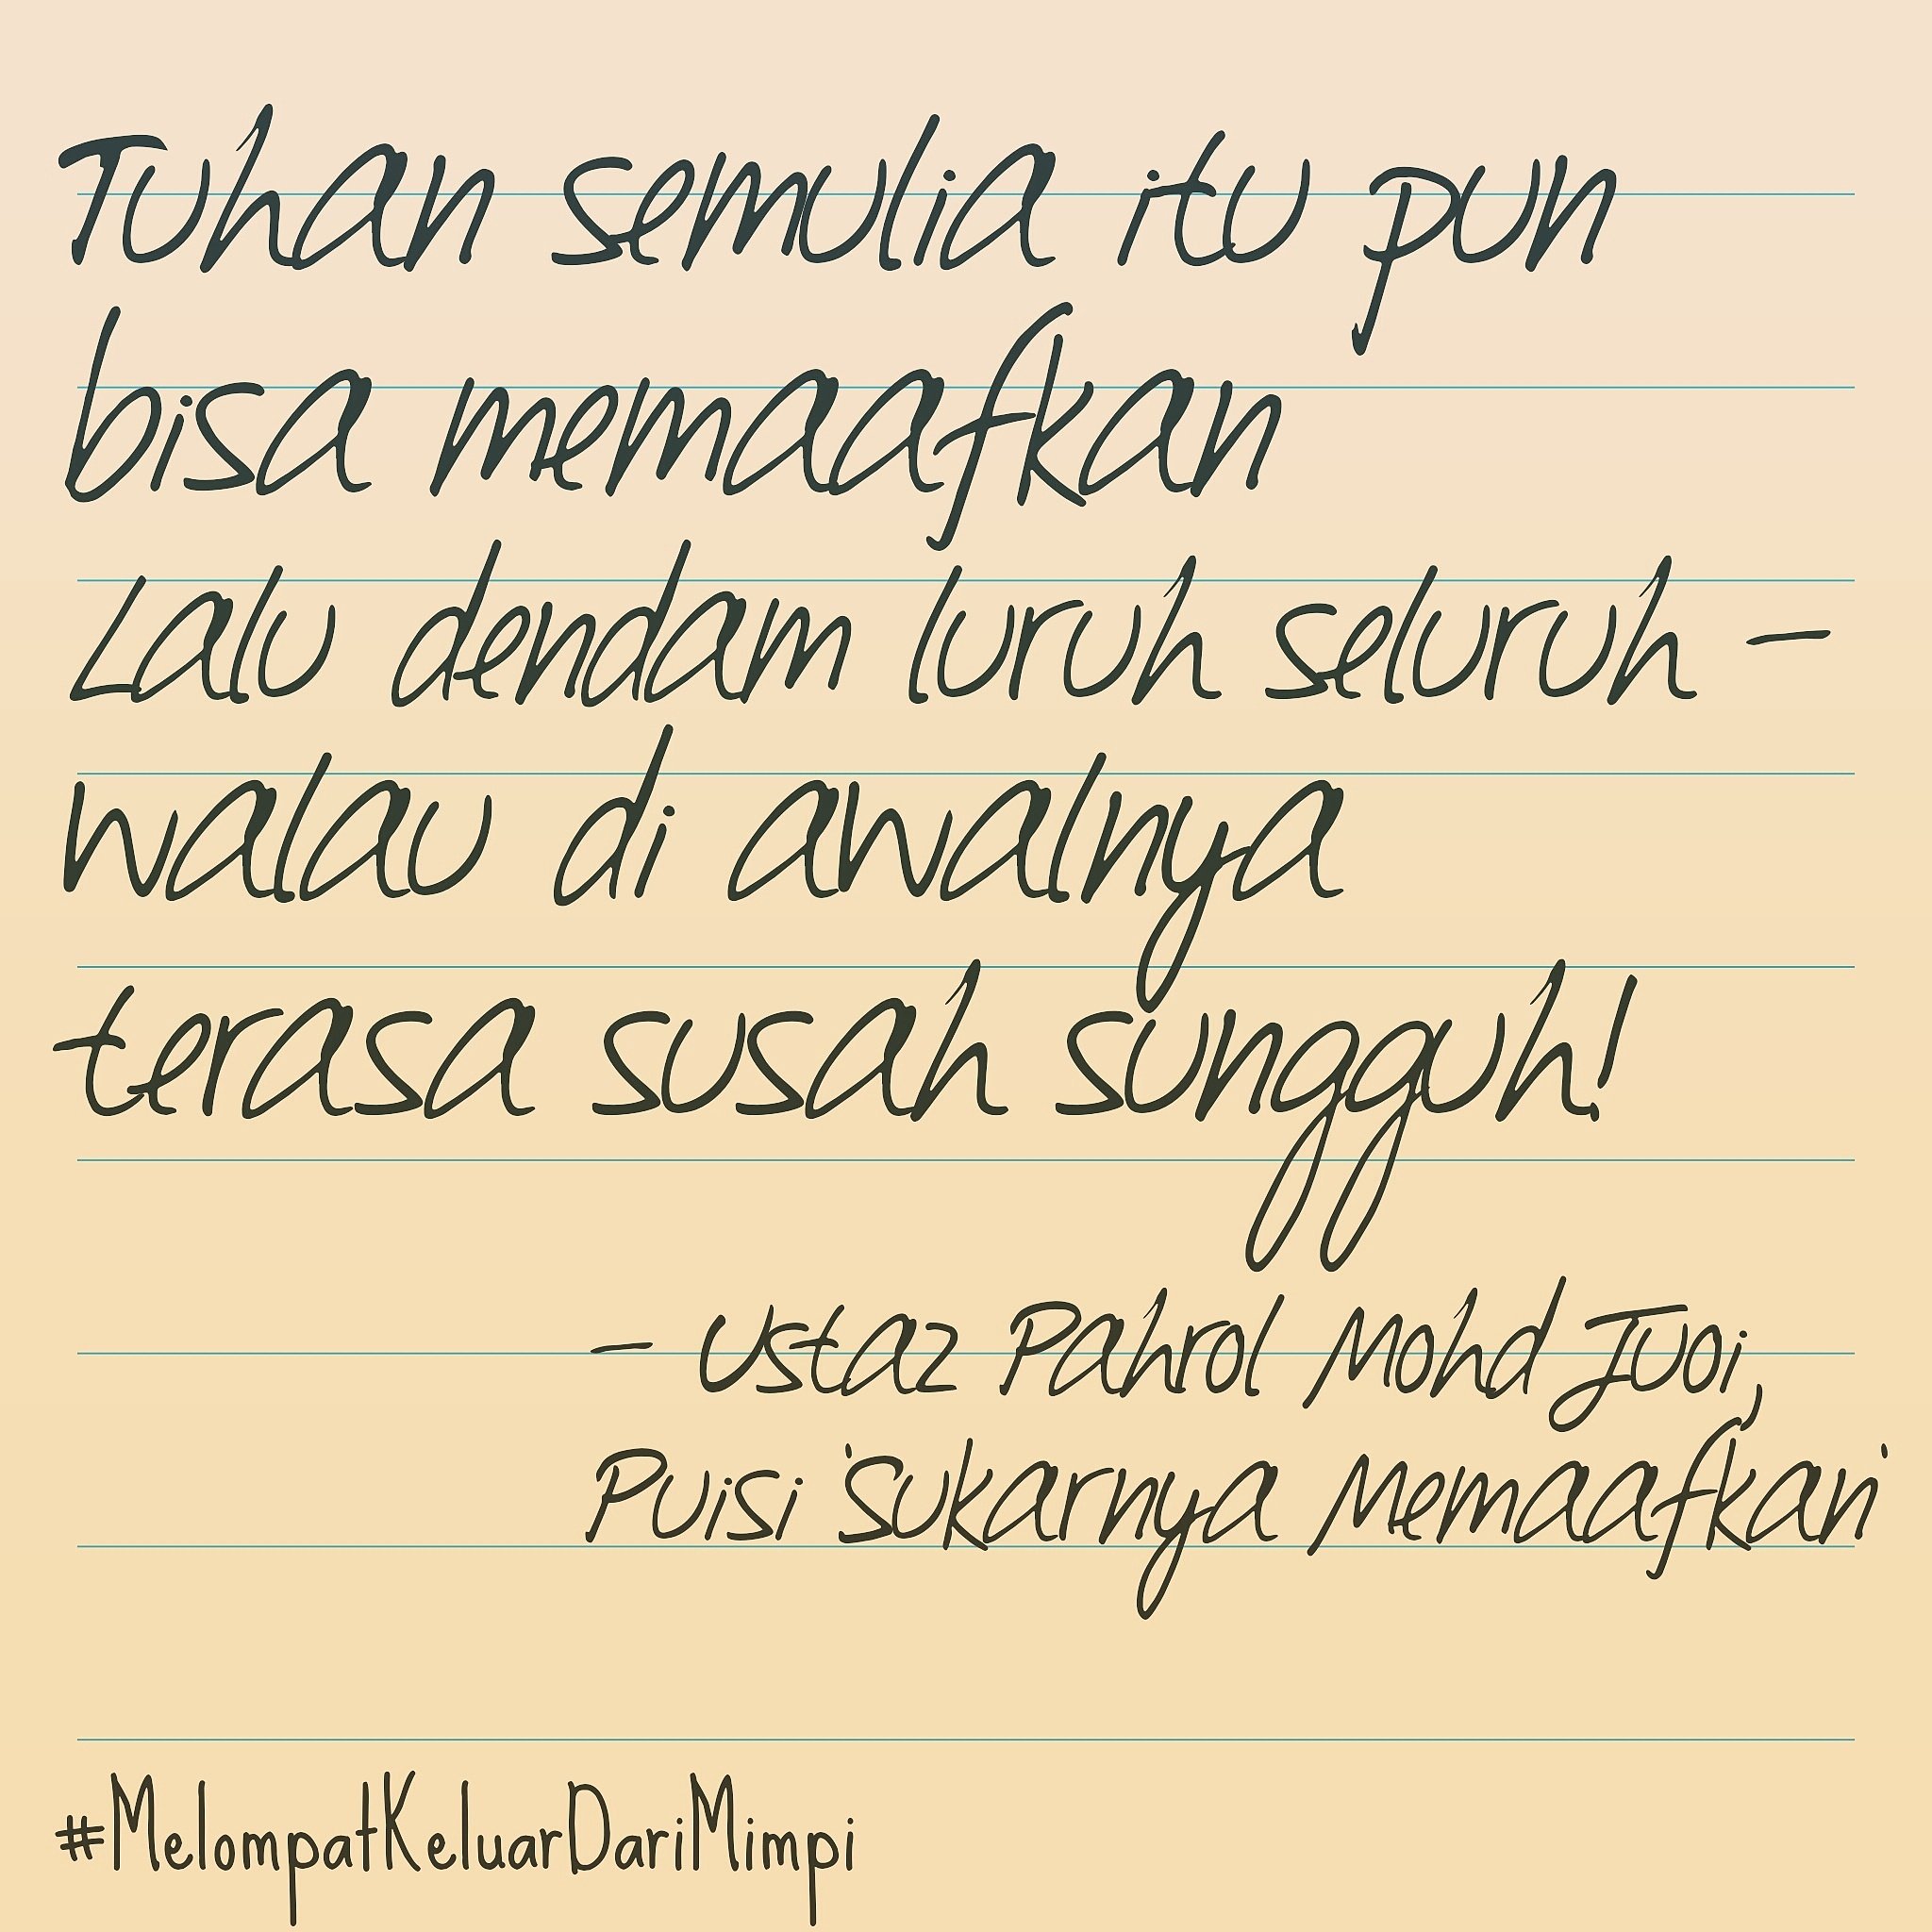 Tuhan semulia itu pun
bisa memaafkan
Lalu dendam luruh seluruh -
walau di awalnya
terasa susah sungguh!
- Ustaz Pahrol Mohd Juoi,
Puisi 'Sukarnya Memaafkan'
#MelompatKeluarDariMimpi